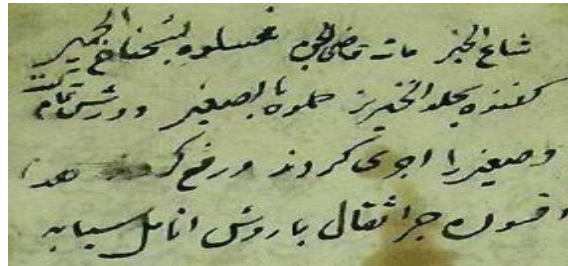 شاع الخبر مات قاضی الجن غسلوه بشخاخ الحمیر
کفنوه بجلد الخنزیر حملوه بالصغیر و ورش تمام
و صغیر را اجوی کردند و رفع کرد
افسون جر اثقال با روش انامل سبابه